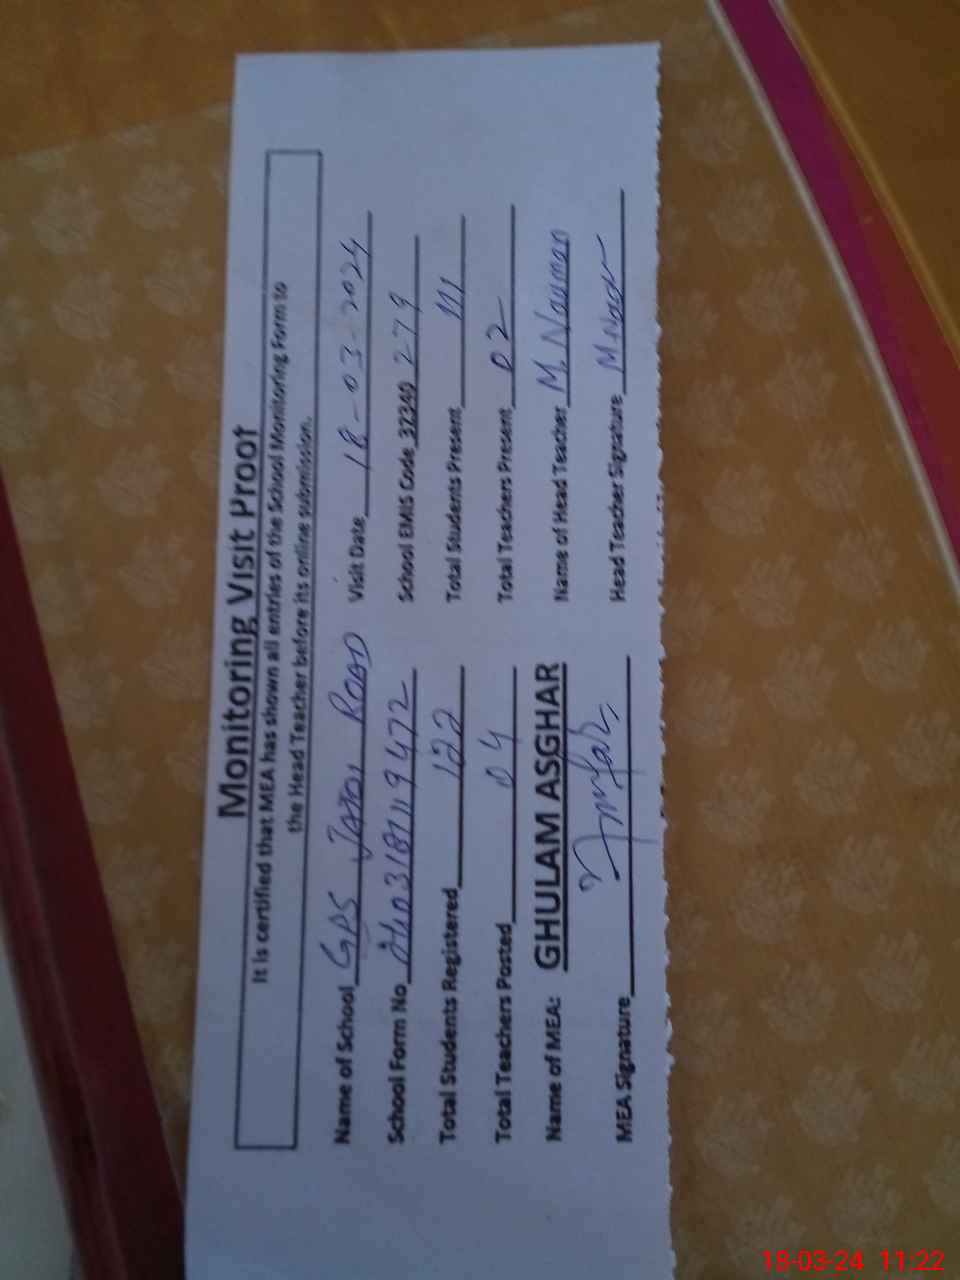 Monitoring Visit Proof
It is certified that MEA has shown all entries of the School Monitoring Form to
the Head Teacher before its online submission.
Name of School GPS JATOI ROAD Visit Date 18-03-2024
School Form No. School EMIS Code 32340 279
Total Students Registered 122 Total Students Present 111
Total Teachers Posted 04 Total Teachers Present 02
Name of MEA: GHULAM ASGHAR Name of Head Teacher M. Nauman
MEA Signature Head Teacher Signature
18-03-24 11:22